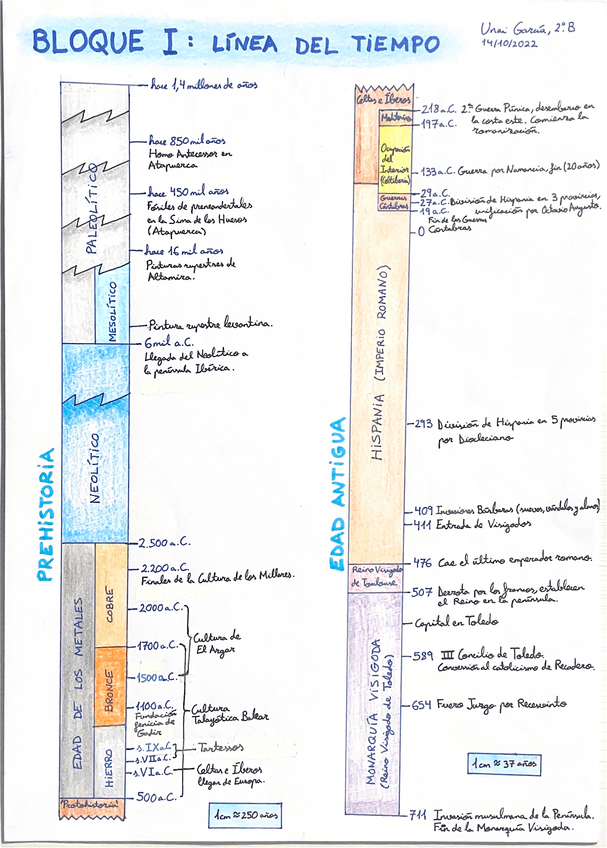 BLOQUE I: LÍNEA DEL TIEMPO
Unai García, 2.º B
14/10/2022
PREHISTORIA
PALEOLÍTICO
MESOLÍTICO
NEOLÍTICO
EDAD DE LOS METALES
COBRE
BRONCE
HIERRO
"Protohistoria"
hace 1,4 millones de años
hace 850 mil años
Homo Antecessor en
Atapuerca
hace 450 mil años
Fósiles de preneandertales
en la Sima de los Huesos
(Atapuerca)
hace 16 mil años
Pinturas rupestres de
Altamira.
Pintura rupestre levantina.
6mil a.C.
Llegada del Neolítico a
la península Ibérica.
2.500 a.C.
2.200 a.C.
Finales de la Cultura de los Millares.
2000 a.C.
Cultura de
El Argar
1700 a.C.
1500 a.C.
Cultura
Talayótica Balear
1100 a.C.
Fundación
fenicia de
Gadir
s. IX a.C.
Tartessos
s. VII a.C.
s. VI a.C.
Celtas e Íberos
llegan de Europa.
500 a.C.
1cm ≈ 250 años
EDAD ANTIGUA
Celtas e Íberos
Ocupación
del
Interior
(Celtiberia)
Guerras
Cántabras
HISPANIA (IMPERIO ROMANO)
Reino Visigodo
de Toulouse
MONARQUÍA VISIGODA
(Reino Visigodo de Toledo)
218 a.C. 2ª Guerra Púnica, desembarco en
la costa este. Comienza la
romanización.
197 a.C.
133 a.C. Guerra por Numancia, fin (20 años)
29 a.C.
27 a.C. División de Hispania en 3 provincias,
unificación por Octavio Augusto.
19 a.C.
Fin de las Guerras
Cántabras
0
293 División de Hispania en 5 provincias
por Diocleciano
409 Invasiones Bárbaras (suevos, vándalos y alanos)
411 Entrada de Visigodos
476 Cae el último emperador romano.
507 Derrota por los francos, establecen
el Reino en la península.
Capital en Toledo
589 III Concilio de Toledo.
Conversión al catolicismo de Recaredo.
654 Fuero Juzgo por Recesvinto
1cm ≈ 37 años
711 Invasión musulmana de la Península.
Fin de la Monarquía Visigoda.